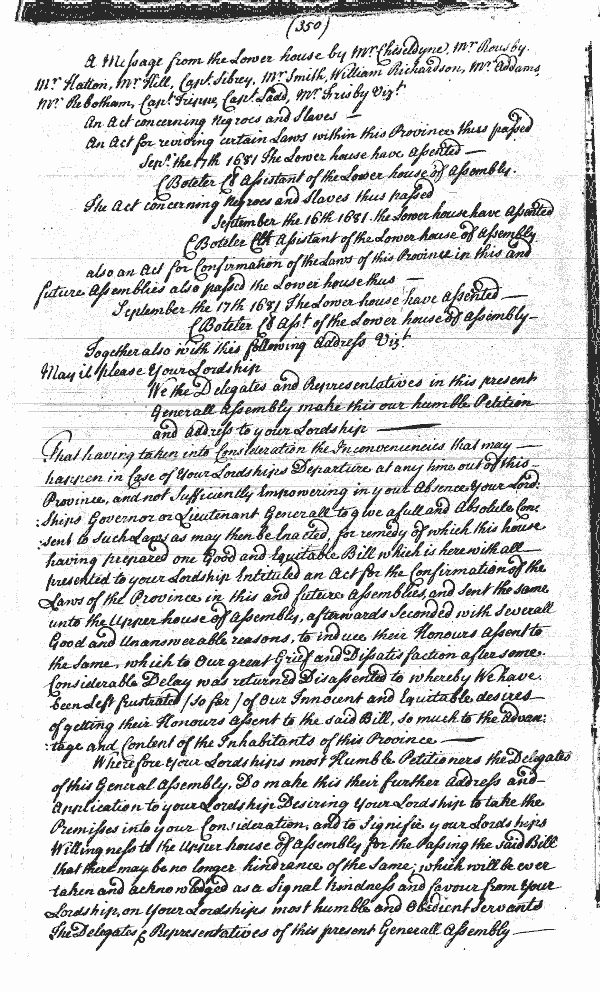 (350)
A Message from the Lower house by Mr Cheseldyne, Mr Rousby,
Mr Hatton, Mr Hill, Capt. Sibrey, Mr Smith, William Richardson, Mr Addams,
Mr Rebotham, Capt Trippe, Capt Ladd, Mr Frisby Vizt
An Act concerning Negroes and Slaves —
An Act for reviving certain Laws within this Province thus passed
Sepr. the 17th 1681 The Lower house have Assented —
C Boteler Cl Assistant of the Lower house of Assembly.
The Act concerning Negroes and Slaves thus passed
September the 16th 1681. the Lower house have Assented
C Boteler Clk Assistant of the Lower house of Assembly
also an Act for Confirmation of the Laws of this Province in this and
future Assemblies also passed the Lower house thus —
September the 17th 1681 The Lower house have Assented —
C Boteler Cl Asst. of the Lower house of Assembly —
Together also with this following Address Vizt
May it please Your Lordship
We the Delegates and Representatives in this present
Generall Assembly make this our humble Petition
and Address to your Lordship —
That having taken into Consideration the Inconveniencies that may —
happen in Case of Your Lordships Departure at any time out of this —
Province, and not Sufficiently Empowering in your Absence Your Lord:
:Ships Governor or Lieutenant Generall to give a full and Absolute Con:
:sent to such Laws as may then be Enacted, for remedy of which this house
having prepared one Good and Equitable Bill which is herewith all —
presented to your Lordship Entituled an Act for the Confirmation of the
Laws of the Province in this and future Assemblies, and Sent the same
unto the Upper house of Assembly, afterwards Seconded with Severall
Good and Unanswerable reasons, to induce their Honours Assent to
the same, which to Our great Grief and Dissatisfaction after some
Considerable Delay was returned Disassented to whereby We have
been Left frustrated [so far] of Our Innocent and Equitable desires
of getting their Honours Assent to the said Bill, so much to the Advan:
:tage and Content of the Inhabitants of this Province —
Wherefore Your Lordships most Humble Petitioners the Delegates
of this General Assembly, Do make this their further Address and
Application to your Lordship Desiring Your Lordship to take the
Premisses into your Consideration, and to Signifie your Lordships
Willingness to the Upper house of Assembly for the Passing the said Bill
that there may be no longer hindrance of the same; which will be ever
taken and acknowledged as a Signal kindness and favour from Your
Lordship, on Your Lordships most humble and Obedient Servants
The Delegates & Representatives of this present Generall Assembly —